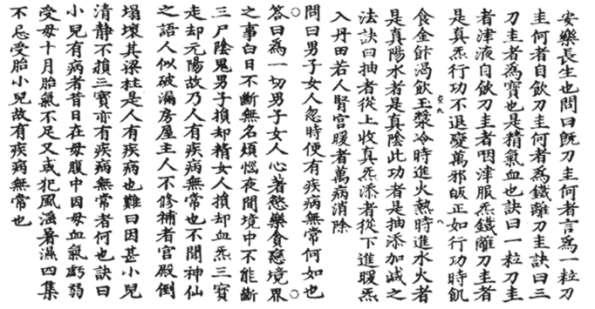 安樂長生也問曰旣刀圭何者言爲一粒刀
圭何者自飲刀圭何者爲鐵離刀圭訣曰三
刀圭者爲寶也是精氣血也訣曰一粒刀圭
者津液自飲刀圭者咽津服炁鐵離刀圭者
是真炁行功不退變萬邪皈正如行功時飢
食金餅渴飲玉漿冷時進火熱時進水火者
是真陽水者是真陰此功者是抽添加減之
法訣曰抽者從上收真炁添者從下進暖炁
入丹田若人腎宫暖者萬病消除
問曰男子女人忽時便有疾病無常何如也
答曰爲一切男子女人心著慾樂貪戀境界
之事白日不斷無名煩惱夜間境中不能斷
三尸陰鬼男子損却精女人損却血炁三寶
走却元陽故乃人有疾病無常也不聞神仙
之語人似破漏房屋主人不修補者宫殿倒
塌壞其梁柱是人有疾病也難曰因甚小兒
清靜不損三寶亦有疾病無常者何也訣曰
小兒有病者昔日在母腹中因母血氣虧弱
受母十月胎氣不足又或犯風寒暑濕四集
不忌受胎小兒故有疾病無常也